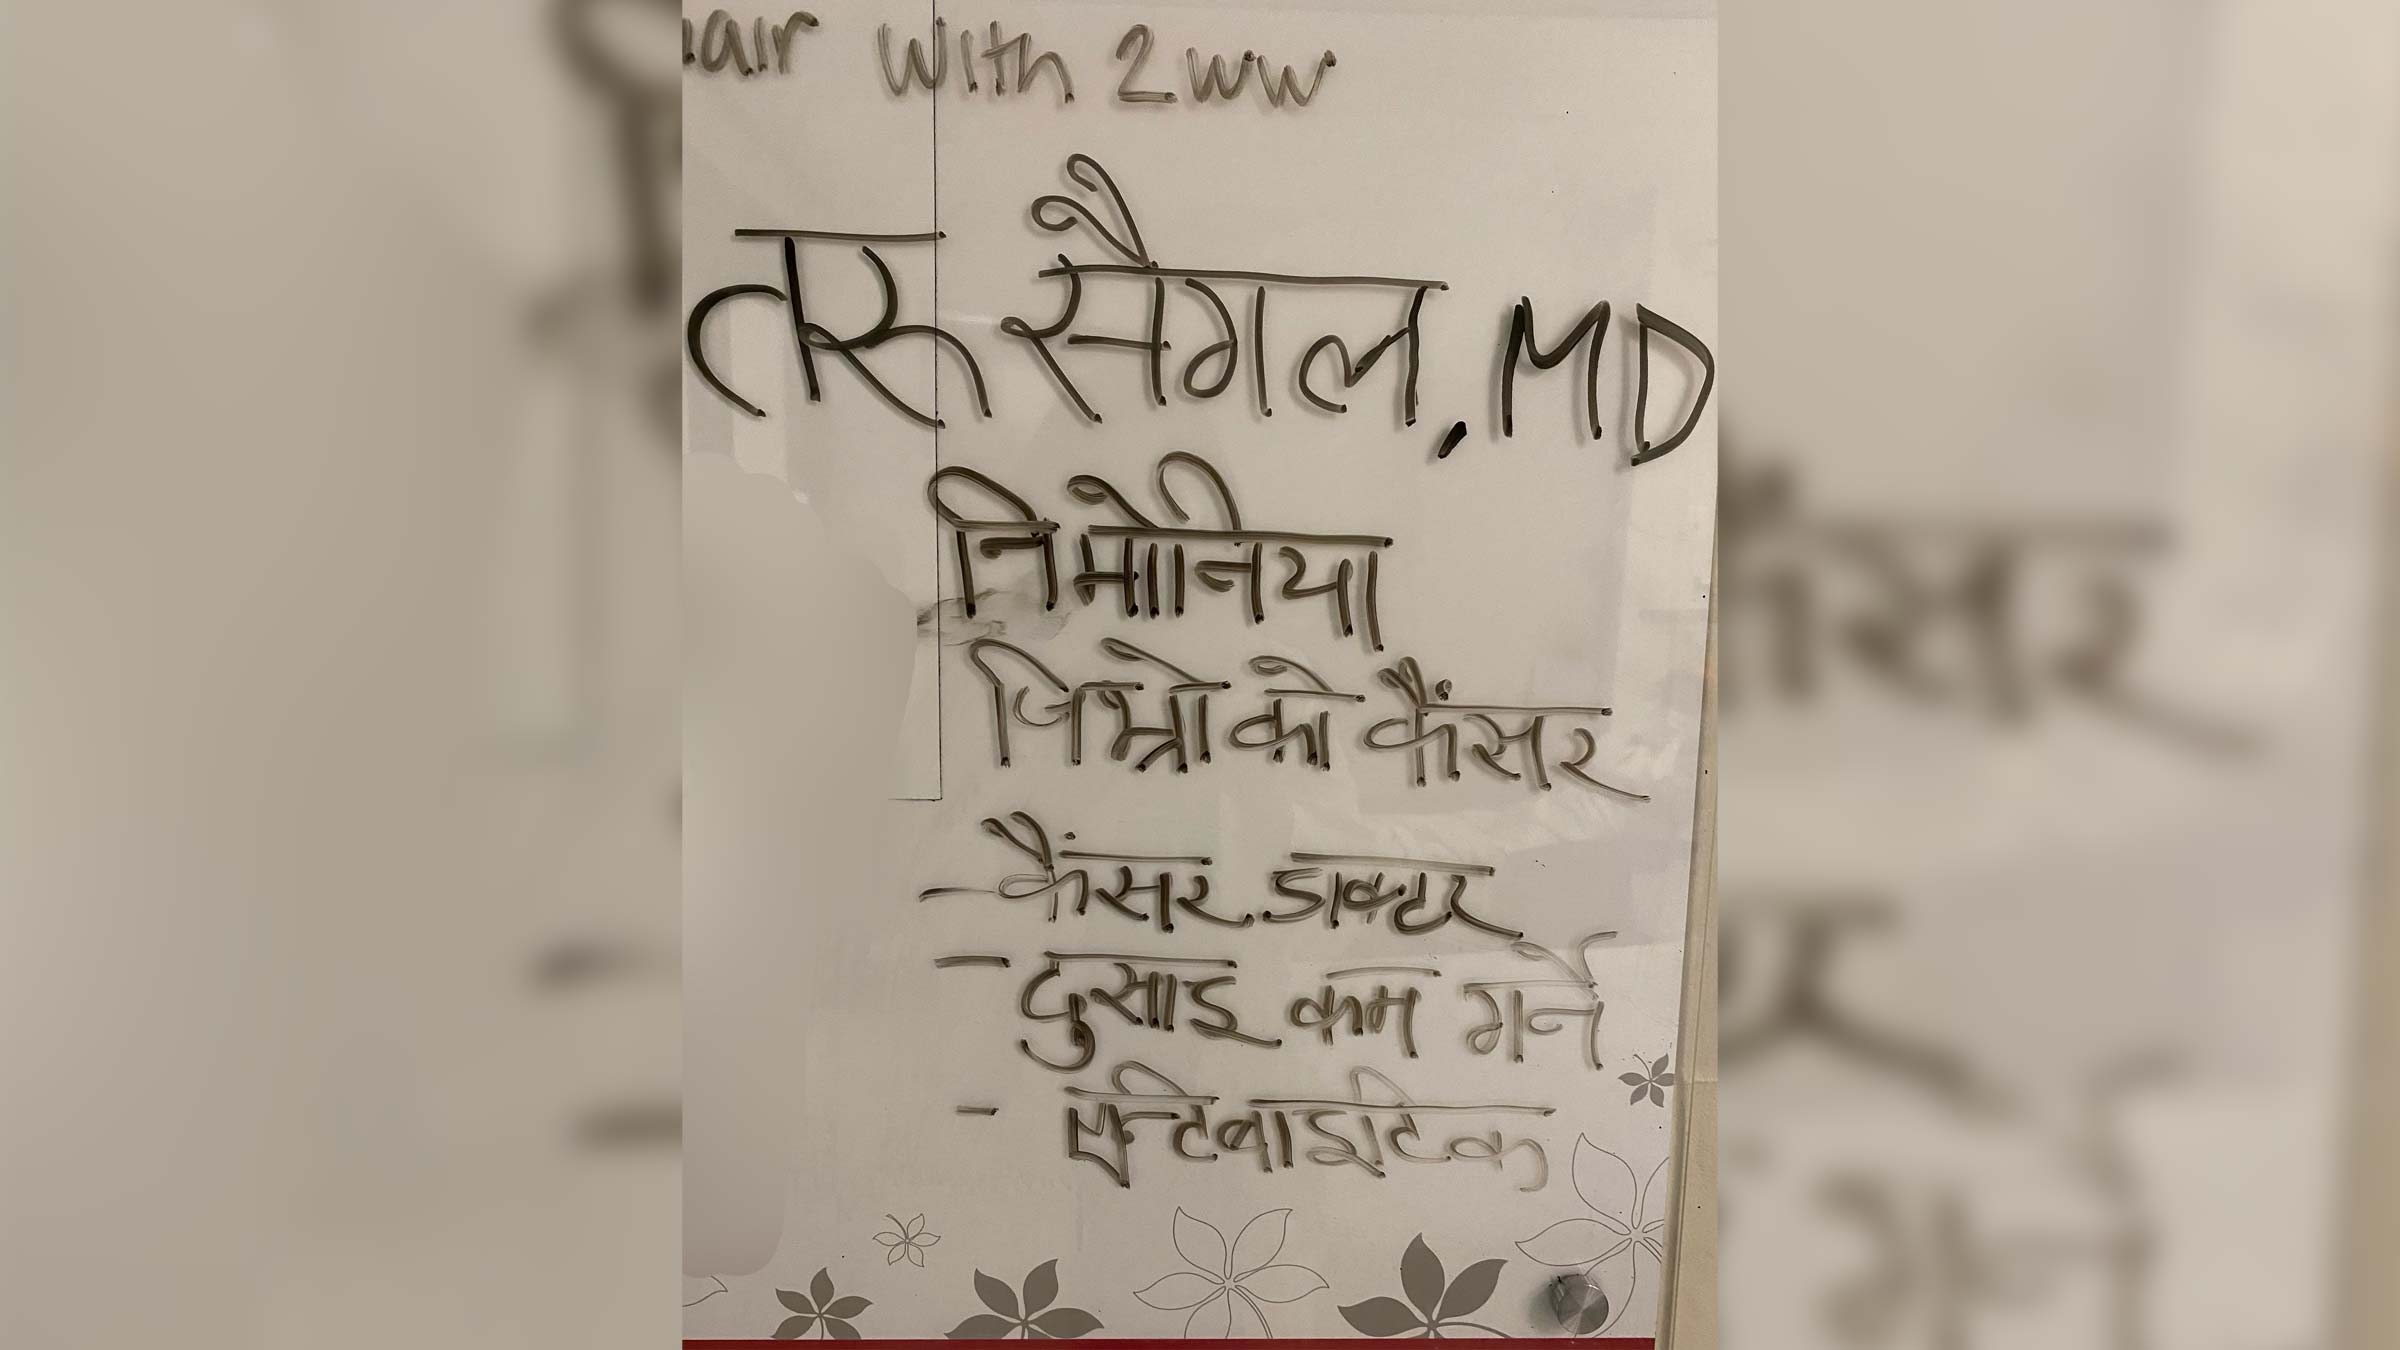 air with 2ww
तरु सैगल, MD
निमोनिया
जिभ्रो को कैंसर
- कैंसर डाक्टर
- दुसाइ कम गर्ने
- एन्टिबाइटिक